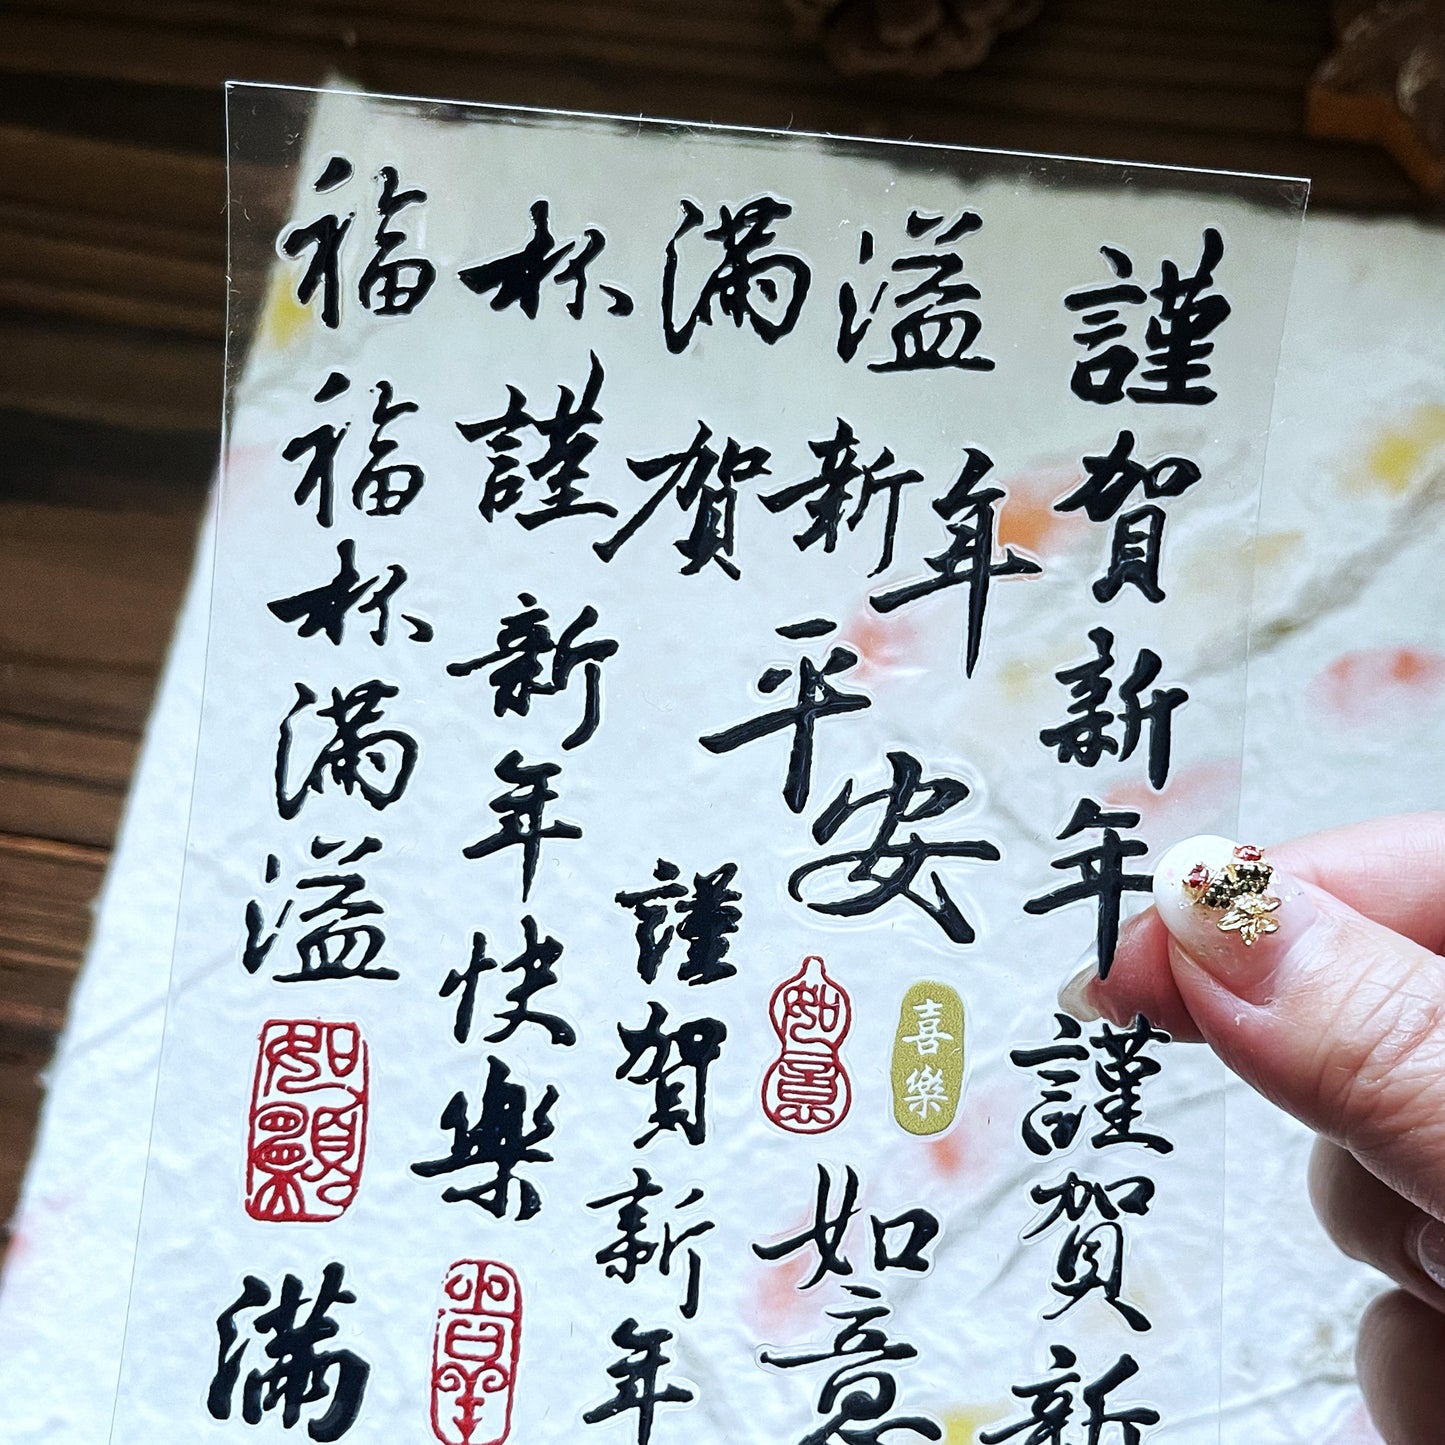 福杯滿溢
謹賀新年
謹賀新年
福杯滿溢
新年快樂
平安
謹賀新年
如願
如意
喜樂
如意
謹賀新
滿